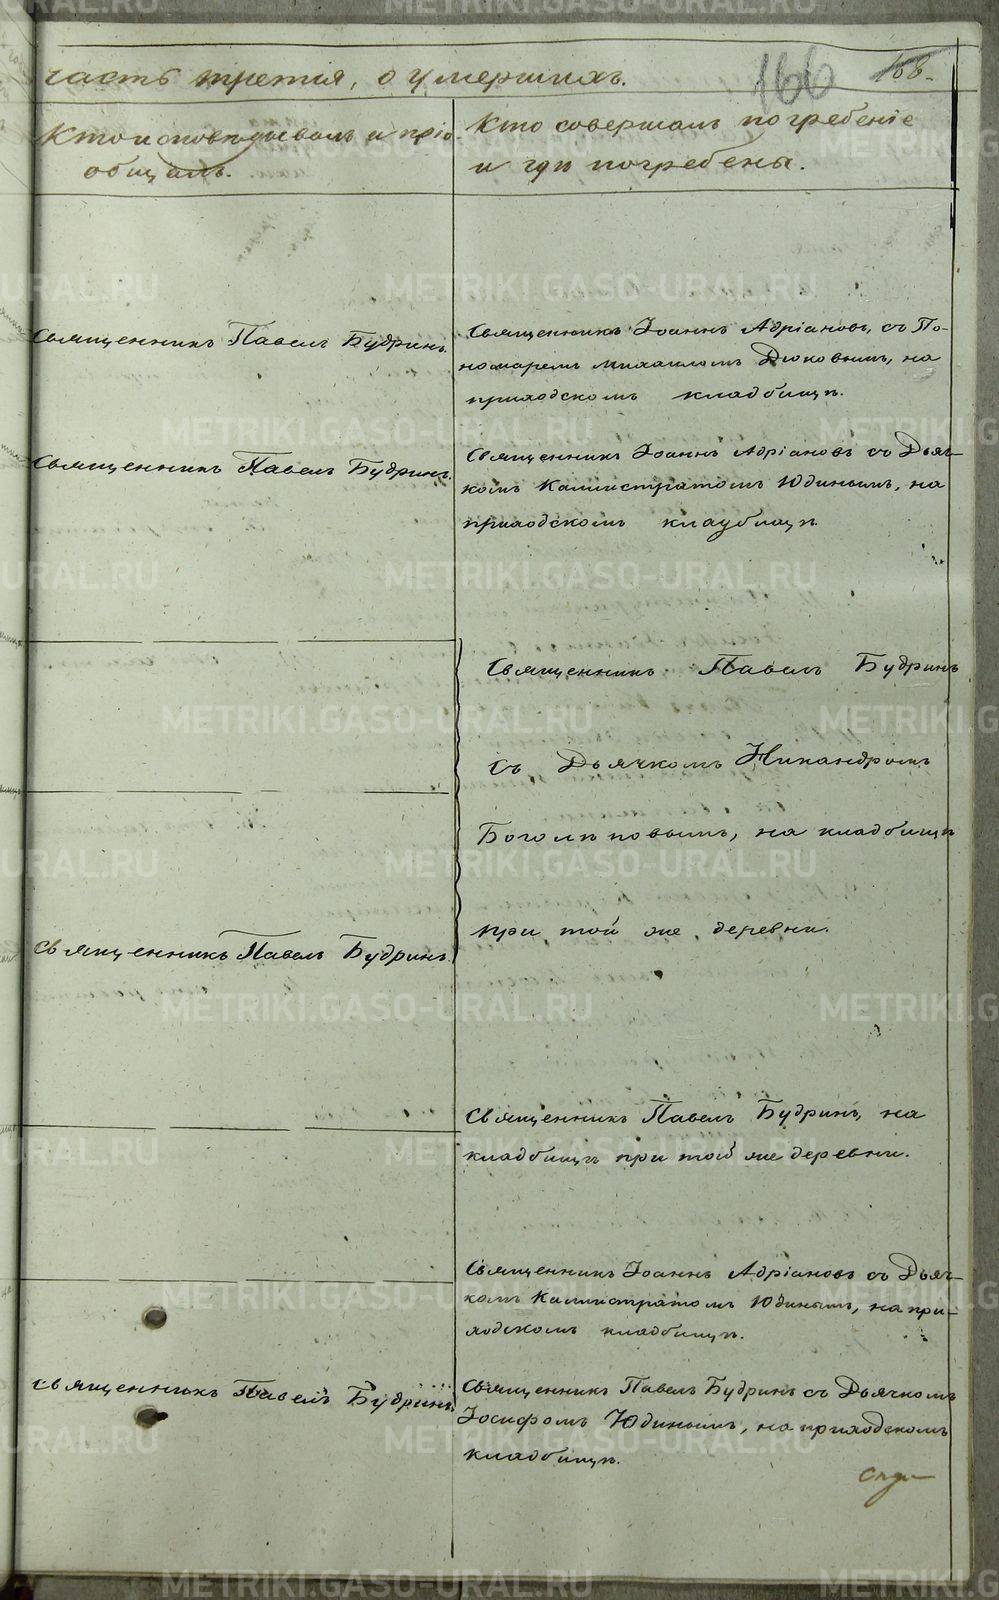 часть третія, о умершихъ.
166 166.
Кто исповѣдывалъ и прiо-
общалъ.
Кто совершалъ погребеніе
и гдѣ погребены.
Священникъ Павелъ Будринъ.
Священникъ Іоаннъ Адріановъ, съ По-
номаремъ Михаиломъ Дюковымъ, на
приходскомъ кладбищѣ.
Священникъ Павелъ Будринъ.
Священникъ Іоаннъ Адріановъ съ Дьяч-
комъ Каллистратомъ Юдинымъ, на
приходскомъ кладбищѣ
Священникъ Павелъ Будринъ
съ Дьячкомъ Никандромъ
Боголѣповымъ, на кладбищѣ
при той же деревни.
Священникъ Павелъ Будринъ.
Священникъ Павелъ Будринъ, на
кладбищѣ при той же деревни.
Священникъ Іоаннъ Адріановъ съ Дьяч-
комъ Каллистратомъ Юдинымъ, на при-
ходскомъ кладбищѣ.
Священникъ Павелъ Будринъ.
Священникъ Павелъ Будринъ съ Дьячкомъ
Іосифомъ Юдинымъ, на приходскомъ
кладбищѣ.
METRIKI.GASO-URAL.RU